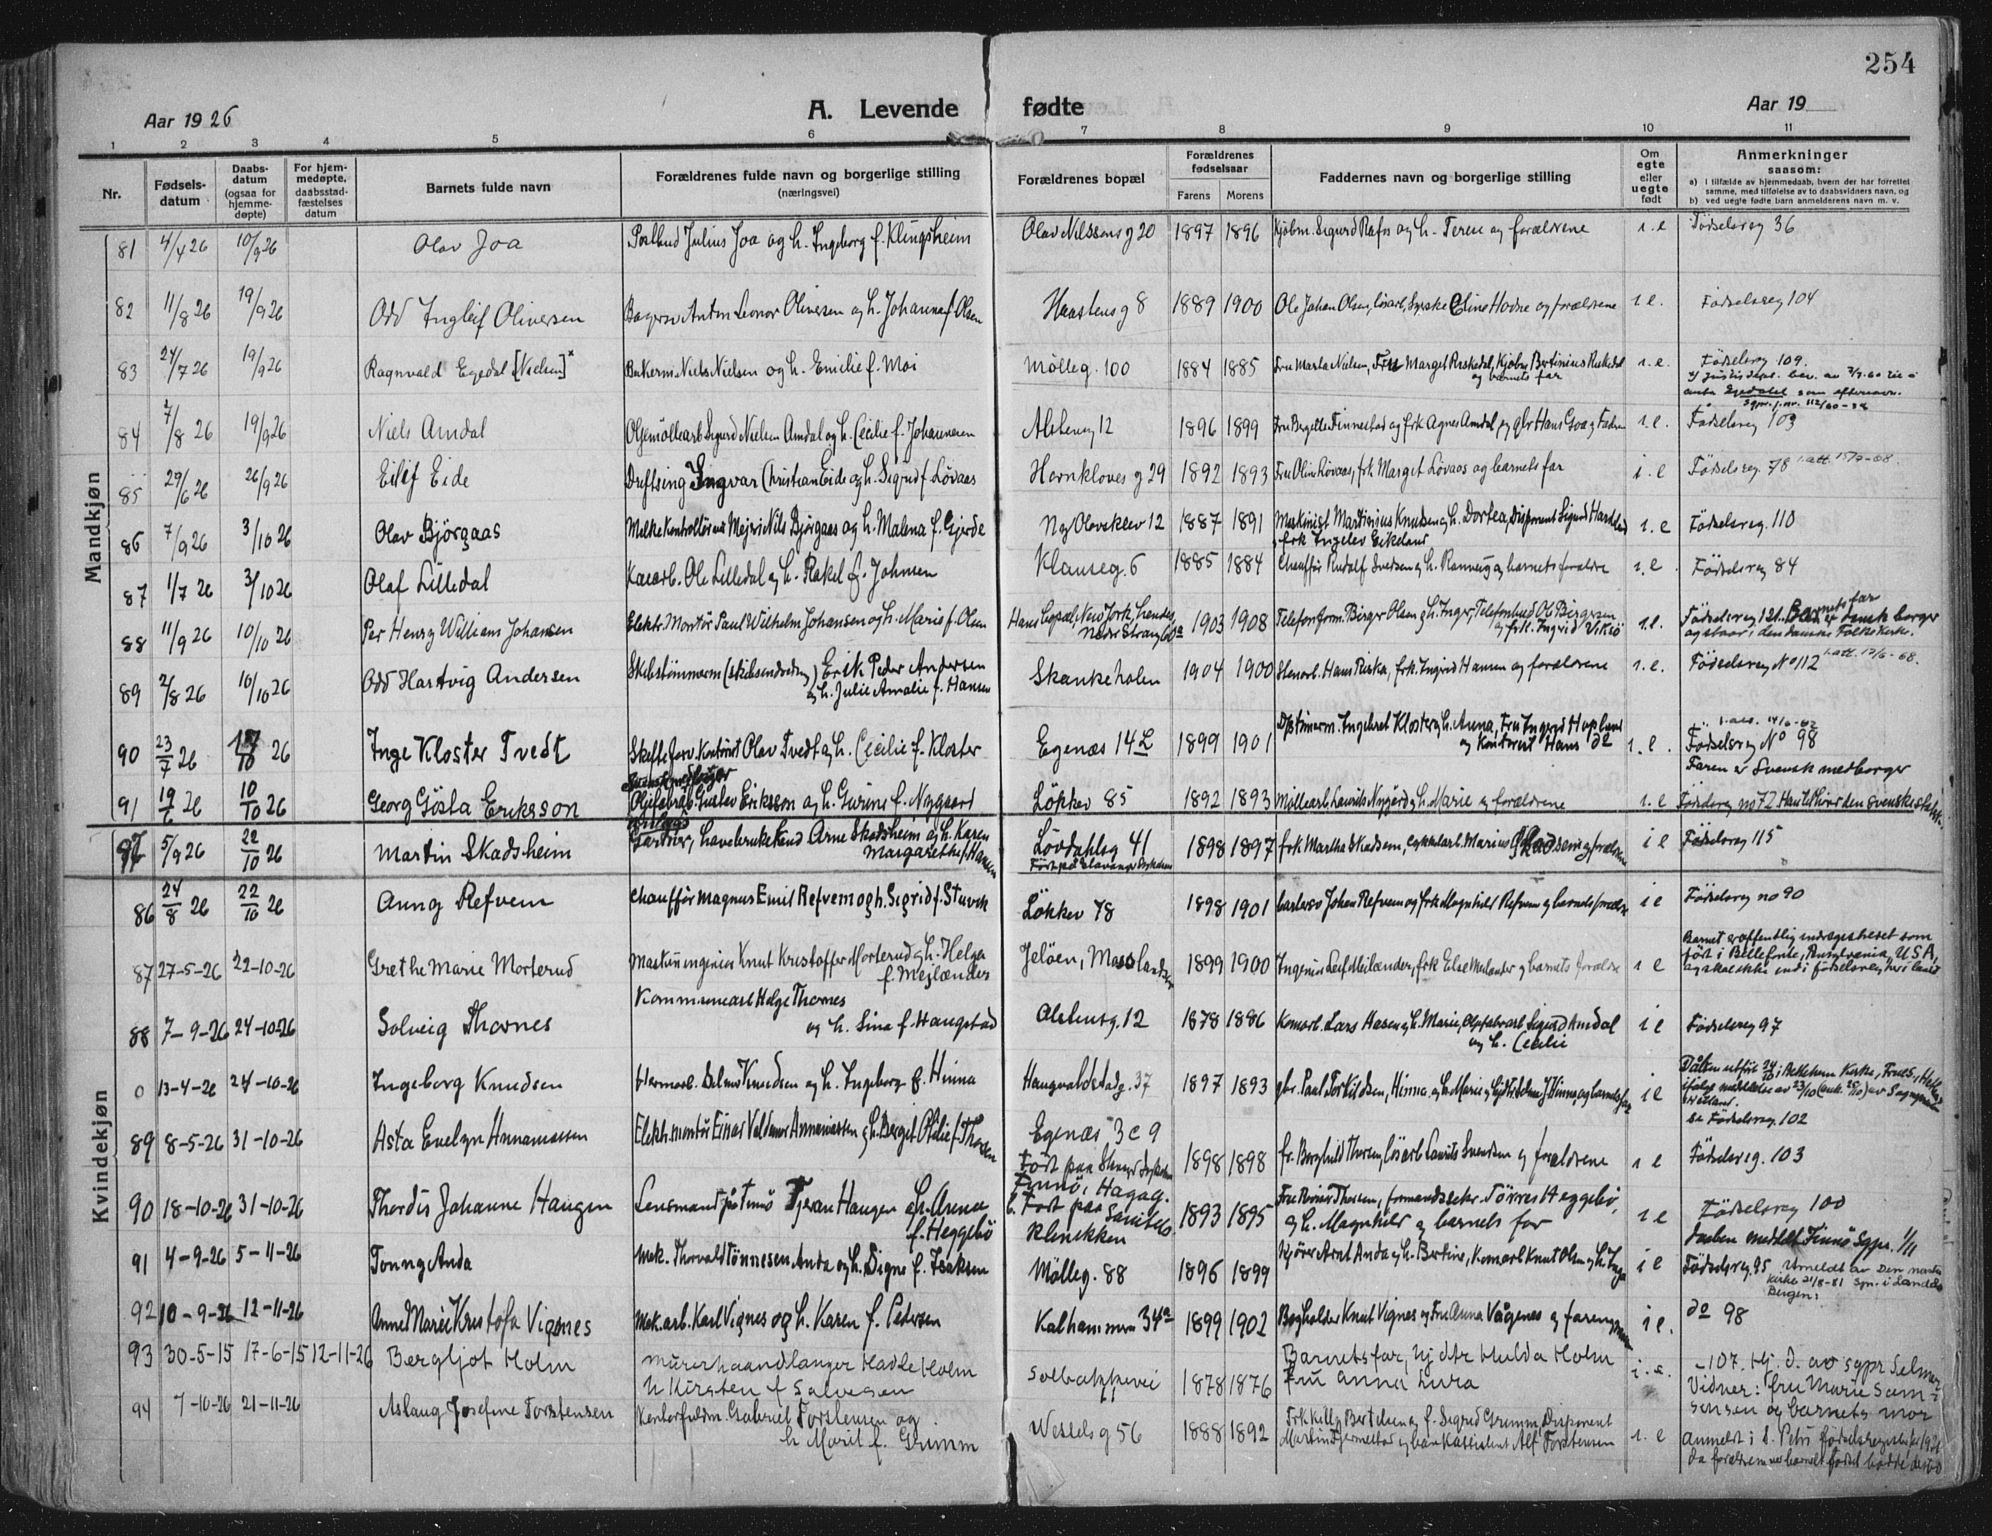 254
Aar 1926 A. Levende fødte Aar 19
1 2 3 4 5 6 7 8 9 10 11
Nr. Fødsels-datum Daabs-datum (ogsaa for hjemme-døpte) For hjem-medøpte, daabsstad-fæstelses datum Barnets fulde navn Forældrenes fulde navn og borgerlige stilling (næringsvei) Forældrenes bopæl Forældrenes fødselsaar Farens Morens Faddernes navn og borgerlige stilling Om egte eller uegte født Anmerkninger saasom:
a) I tilfælde av hjemmedaab, hvem der har forrettet samme, med tilføielse av to daabsvidners navn, og
b) ved uegte fødte barn anmelderens navn m. v.
Mandkjøn
81 4/4 26 10/9 26 Olav Joa Postbud Julius Joa og h. Ingeborg f. Klingsheim Olav Nilssons g 20 1897 1896 Kjøbm. Sigurd Rafos og h. Terese og forældrene i. e Fødselsreg 36
82 11/8 26 19/9 26 Odd Ingleif Oliversen Bagersv Anton Leonor Oliversen og h. Johanna f Olsen Haastens g 8 1889 1900 Ole Johan Olsen, løsarb, Syerske Eline Hodne og forældrene i. e. Fødselsreg 104
83 24/7 26 19/9 26 Ragnvald Egedal [Nielsen]x Bakerm. Niels Nielsen og h. Emilie f. Moi Mølleg. 100 1884 1885 Fru Marta Nielsen, Fru Marget Roskedal, Kjøbm Bertinius Roskedal
og barnets far i. e. Fødselsreg 109.
x/ Justisdeps. bev. av 7/7-60 til å
anta Egedal som etternavn.
Sgpr. j.nr. 112/60-34
84 7/8 26 19/9 26 Niels Amdal Oljemøllearb Sigurd Nielsen Amdal og h. Cecilie f. Johannesen Alstensg 12 1896 1899 Fru Bergette Finnestad og frk Agnes Amdal og gbr Hans Goa og Faderen i. e. Fødselsreg 103
85 29/6 26 26/9 26 Eilif Eide Driftsing Ingvar Christian Eide og h. Sigrid f Løvaas Hornkloves g 29 1892 1893 Fru Oline Løvaas, frk Marget Løvaas og barnets far i. e Fødselsreg. 78 1. att. 15/7-68.
86 7/9 26 3/10 26 Olav Björgaas Melkekontrollør ved Mejeri Nils Björgaas og h. Malena f. Gjerde Ny Olavskleiv 12 1887 1891 Maskinist Martinius Knudsen og h. Dortea, Disponent Sigurd Harstad
frk Ingelev Eikeland i. e Fødselsreg. 110
87 1/7 26 3/10 26 Olaf Lilledal Kaiarb. Ole Lilledal og h. Rakel f. Johnsen Klausg. 6 1885 1884 Chauffør Rudolf Svedsen og h. Ranveig og barnets forældre i. e. Fødselsreg 84
88 11/9 26 10/10 26 Per Henry William Johansen Elektr. Montør Paul Wilhelm Johansen og h. Marie f. Olsen Hans bopæl, New York, hendes
Nedre Strandg 60a 1903 1908 Telefonform. Birger Olsen og h. Inger, Telefonbud Ole Birgersen
og frk. Ingrid Vikså i. e. Fødselsreg 121. Barnets far
er dansk borger
og staar i den danske Folkekirke.
89 2/8 26 10/10 26 Odd Hartvig Andersen Skibstømmerm (skibsindredn.) Erik Peder Andersen
og h. Julie Amalie f. Hansen Skankeholen 1904 1900 Stenarb. Hans Riska, frk. Ingrid Hansen og forældrene i. e. Fødselsreg No 112 1. att. 12/6-68.
90 23/7 26 17/10 26 Inge Kloster Tvedt Skifteforv. Kontorist Olav Tvedt og h. Cecilie f. Kloster Egenæs 14 L 1899 1901 Ingebret Kloster og h. Anna, Fru Ingrid Hopland
og Kontorist Hans do i. e. 1. att. 14/6-62
Fødselsreg No 98
91 19/6 26 10/10 26 Georg Gösta Eriksson Svensk medborger
Gustav Eriksson og h. Gurine f. Nygaard Løkkev 85 1892 1893 Møllearb Lauritz Nygård og h. Marie og forældrene i. e Faren er Svensk medborger
Fødselsreg no 72 Han tilhører den svenske statsk.
92 5/9 26 22/10 26 Martin Skadsheim Gartner, havebrukskand Arne Skadsheim og h. Karen
Margarethe f. Hansen Løvdahlsg 41
Født paa Stavanger Sykehus 1898 1897 frk. Martha Skadsem, cykkelarb. Marius Skadsem og forældrene i e Fødselsreg 115
Kvindekjøn
86 24/8 26 22/10 26 Anny Refvem Chauffør Magnus Emil Refvem og h. Sigrid f. Stuvik Løkkev 78 1898 1901 Johan Refvem og frk Magnhild Refvem og barnets forældre i e Fødselsreg no 90
87 27-5-26 22-10-26 Grethe Marie Morterud Maskiningeniør Knut Kristoffer Morterud og h. Helga
f. Mejlænder Jeløen, Moss landsogn 1899 1900 Ingeniør Leif Mejlænder, frk Else Mejlænder og barnets forældre i e Barnet er offentlig indregistreret som
født i Bellefonte, Pensylvania, USA,
og skal ikke ind i fødselsreg her i landet
88 7-9-26 24-10-26 Solveig Thornes Kommunearb Helge Thornes
og h. Lina f. Haugstad Alstensg. 12 1878 1886 Komarb. Lars Hesen og h. Marie, Oljefabrarb Sigurd Amdal
og h. Cecilie i e Fødselsreg 97
0 13-4-26 24-10-26 Ingeborg Knudsen Hermarb. Selmer Knudsen og h. Ingeborg f. Hinna Haugvaldstadg. 37 1897 1893 gbr. Paal Torkildsen, Hinna og h. Marie og Hinna, og barnets far i e Dåben utført 24/10 i Betlehem Kirke,
ifølge meddelelse av 25/10
Hetland.
se Fødselsreg. 102
89 8-5-26 31-10-26 Asta Evelyn Annaniassen Elektr. montør Einar Valdemar Annaniassen og h. Berget Otilie f. Thorsen Egenæs 3 c 9
Født paa Stavanger Sykehus 1898 1898 fr. Borghild Thorsen, løsarb Laurits Svendsen og forældrene i e Fødselsreg. 103
90 18-10-26 31-10-26 Thordis Johanne Haugen Lensmand på Finnö Tjeran Haugen og h. Anna
f. Heggebö Finnö, Hagag. 6.
Født paa Sanitets
klinikken 1893 1895 Fru Reinert Thorsen, formandssekr. Tönnes Heggebö,
og h. Magnhild og barnets far i e Fødselsreg 100
Daaben meddelt Finnö Sgpr. 1/11
91 4-9-26 5-11-26 Tonny Anda Mek. Thorvald Tønnesen Anda og h. Signe f. Isaksen Mølleg. 88 1896 1899 Kjører Arnt Anda og h. Bertine, Komarb Knut Olsen og h. Inga i e Fødselsreg. 95 Utmeldt av Den norske
kirke 21/8-81 Spr. i Landås
Bergen.
92 10-9-26 12-11-26 Anne Marie Kristofa Vignes Mek. arb. Karl Vignes og h. Karen f. Pedersen Kalhammeren 34a 1899 1902 Bogholder Knut Vignes og Fru Anna Vågenes og faren i e. do 98
93 30-5-15 17-6-15 12-11-26 Bergljot Holm Murerhaandlanger Hadle Holm
h Kirsten f Salvesen Solbakkevei
11 1878 1876 Barnets far, Hj dtr Hulda Holm
fru Anna Lura i. e. -107. Hj. d. av sgpr Selmer
Vidner: fru Marie Sam-
sonsen og barnets mor
94 7-10-26 21-11-26 Aslaug Josefine Torstensen Kontorfuldm. Gabriel Torstensen og
h Marit f. Grimm Wessels g 56 1888 1892 Frk Kitty Bertelsen og f. Sigrid Grimm, Disponent
Martin Fjermestad og bankassistent Alf Torstensen i. e anmeldt i S. Petri fødselsregister for 1926
da forældrene ved barnets fødsel bodde der